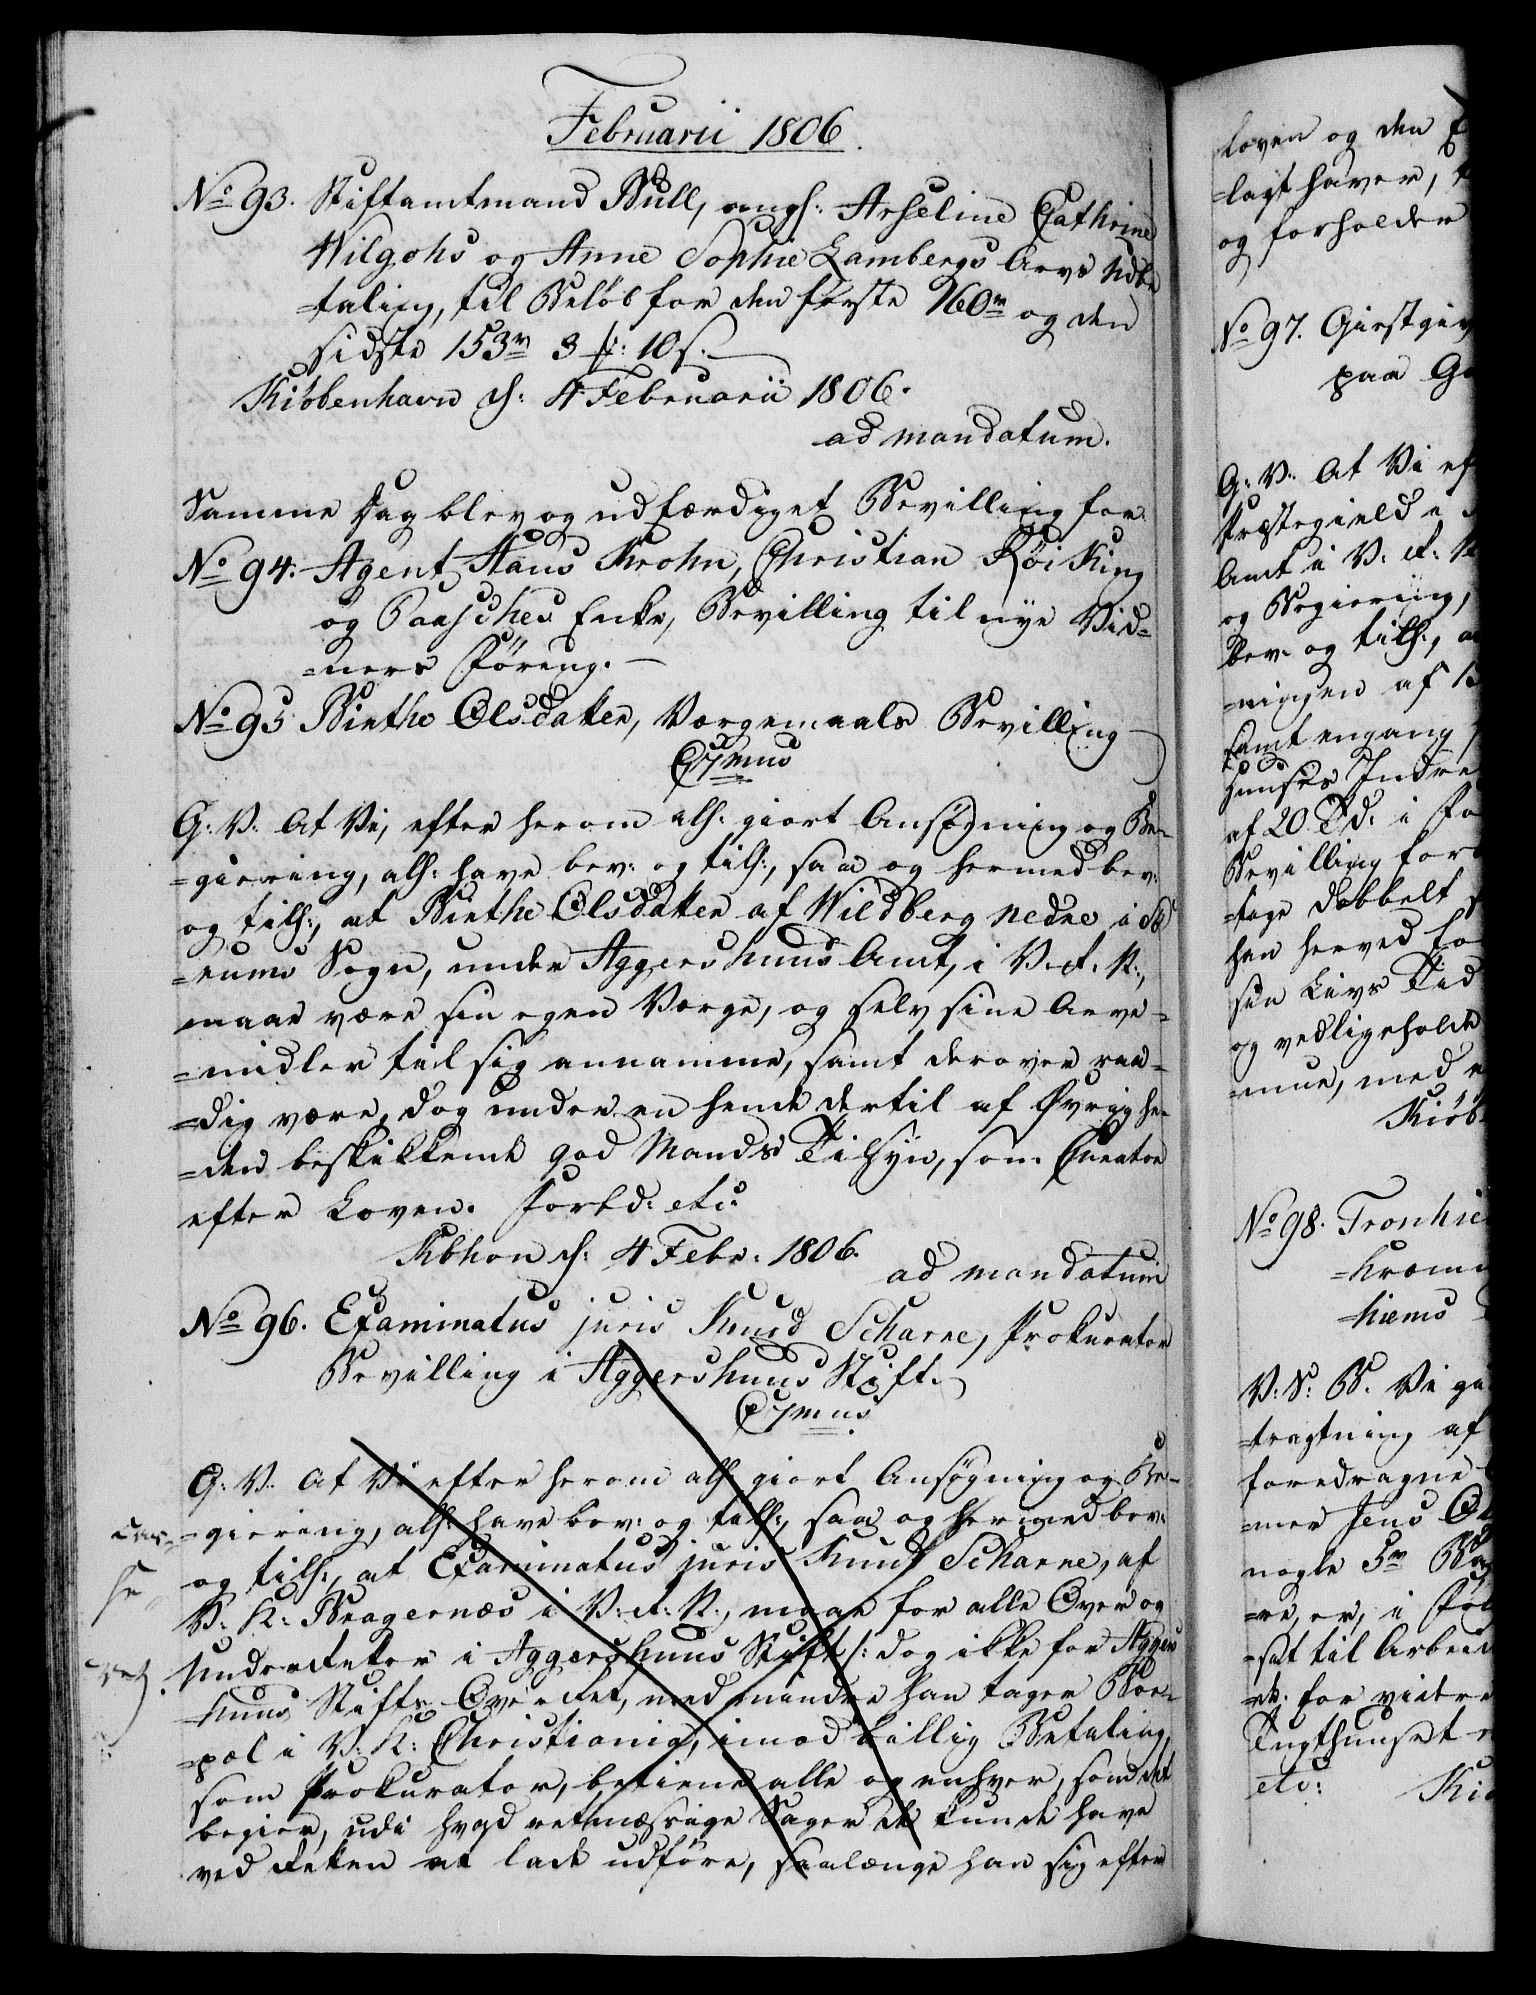 Februarii 1806.
No 93. Stiftamtmand Bull, angl: Arseline Cathrine
Wilgohs og Anne Sophie Lambergs Arvs Udbe
=taling, til Beløb for den første 160 rd og den
sidste 153 rd 3 : 10 s.
Kiöbenhavn d: 4 Februarii 1806.
ad mandatum.
Samme Dag blev og udfærdiget Bevilling for
No 94. Agent Hans Krohn, Christian Köi King
og Paasches Enke, Bevilling til nye Vid=
=ners Föring.
No 95 Birthe Olsdatter, Værgemaals Bevilling
C7mus
G: V: At Vi, efter herom all: giort Ansøgning og Be=
=giering, all: have bev: og till:, saa og hermed bev:
og till:, at Birthe Olsdatter af Wildberg nedre i
=rums Sogn, under Aggershuus Amt, i V. R. N.,
maae være sin egen Værge, og selv sine Arve=
=midler til sig annamme, samt derover raa=
=dig være, dog under en hende dertil af Øvrighe=
=den beskikkende god Mands Tilsyn, som Curator
efter Loven. Forbd: etc:
Kbhvn d: 4 Febr: 1806.
ad mandatum
No 96. Examinatus juris Knud Scharne, Prokurator
Bevilling i Aggershuus Stift.
C7mus
G: V: At Vi efter herom all: giort Ansøgning og Be=
=giering, all: have bev: og till:, saa og hermed bev:
og till:, at Examinatus juris Knud Scharne, af
V: K: Bragernæs i V: R: N:, maae for alle Over og
Underretter i Aggershuus Stift /: dog ikke for Aggers
=huus Stifts Overret, med mindre han tager Boe=
=pæl i V: K: Christiania, imod billig Betaling,
som Prokurator, betiene alle og enhver, som det
begier, udi hvad retmæssige Sager de kunde have
ved Retten at lade udföre, saalænge han sig efter
Loven og den
=lagt haver,
og forholder
No 97. Giestgiv
paa
G: V: At Vi ef
Præstegield i
Amt i V: R: N
og Begiering,
bev: og till:,
=ningen af
samt engang
Huuses Indre
af 20 Td: i
Bevilling for
=tage dobbelt
han herved
sin Livs Tid
og vedligeholde
=mme, med
Kiöb
No 98. Tronhie
=hiems
V: S: B. Vi
=tragtning af
foredragne
=mer Jens
nogle
=re, er, i Föl
=sat til Arbeid
for videre
Tugthuuset
etc: Kiö